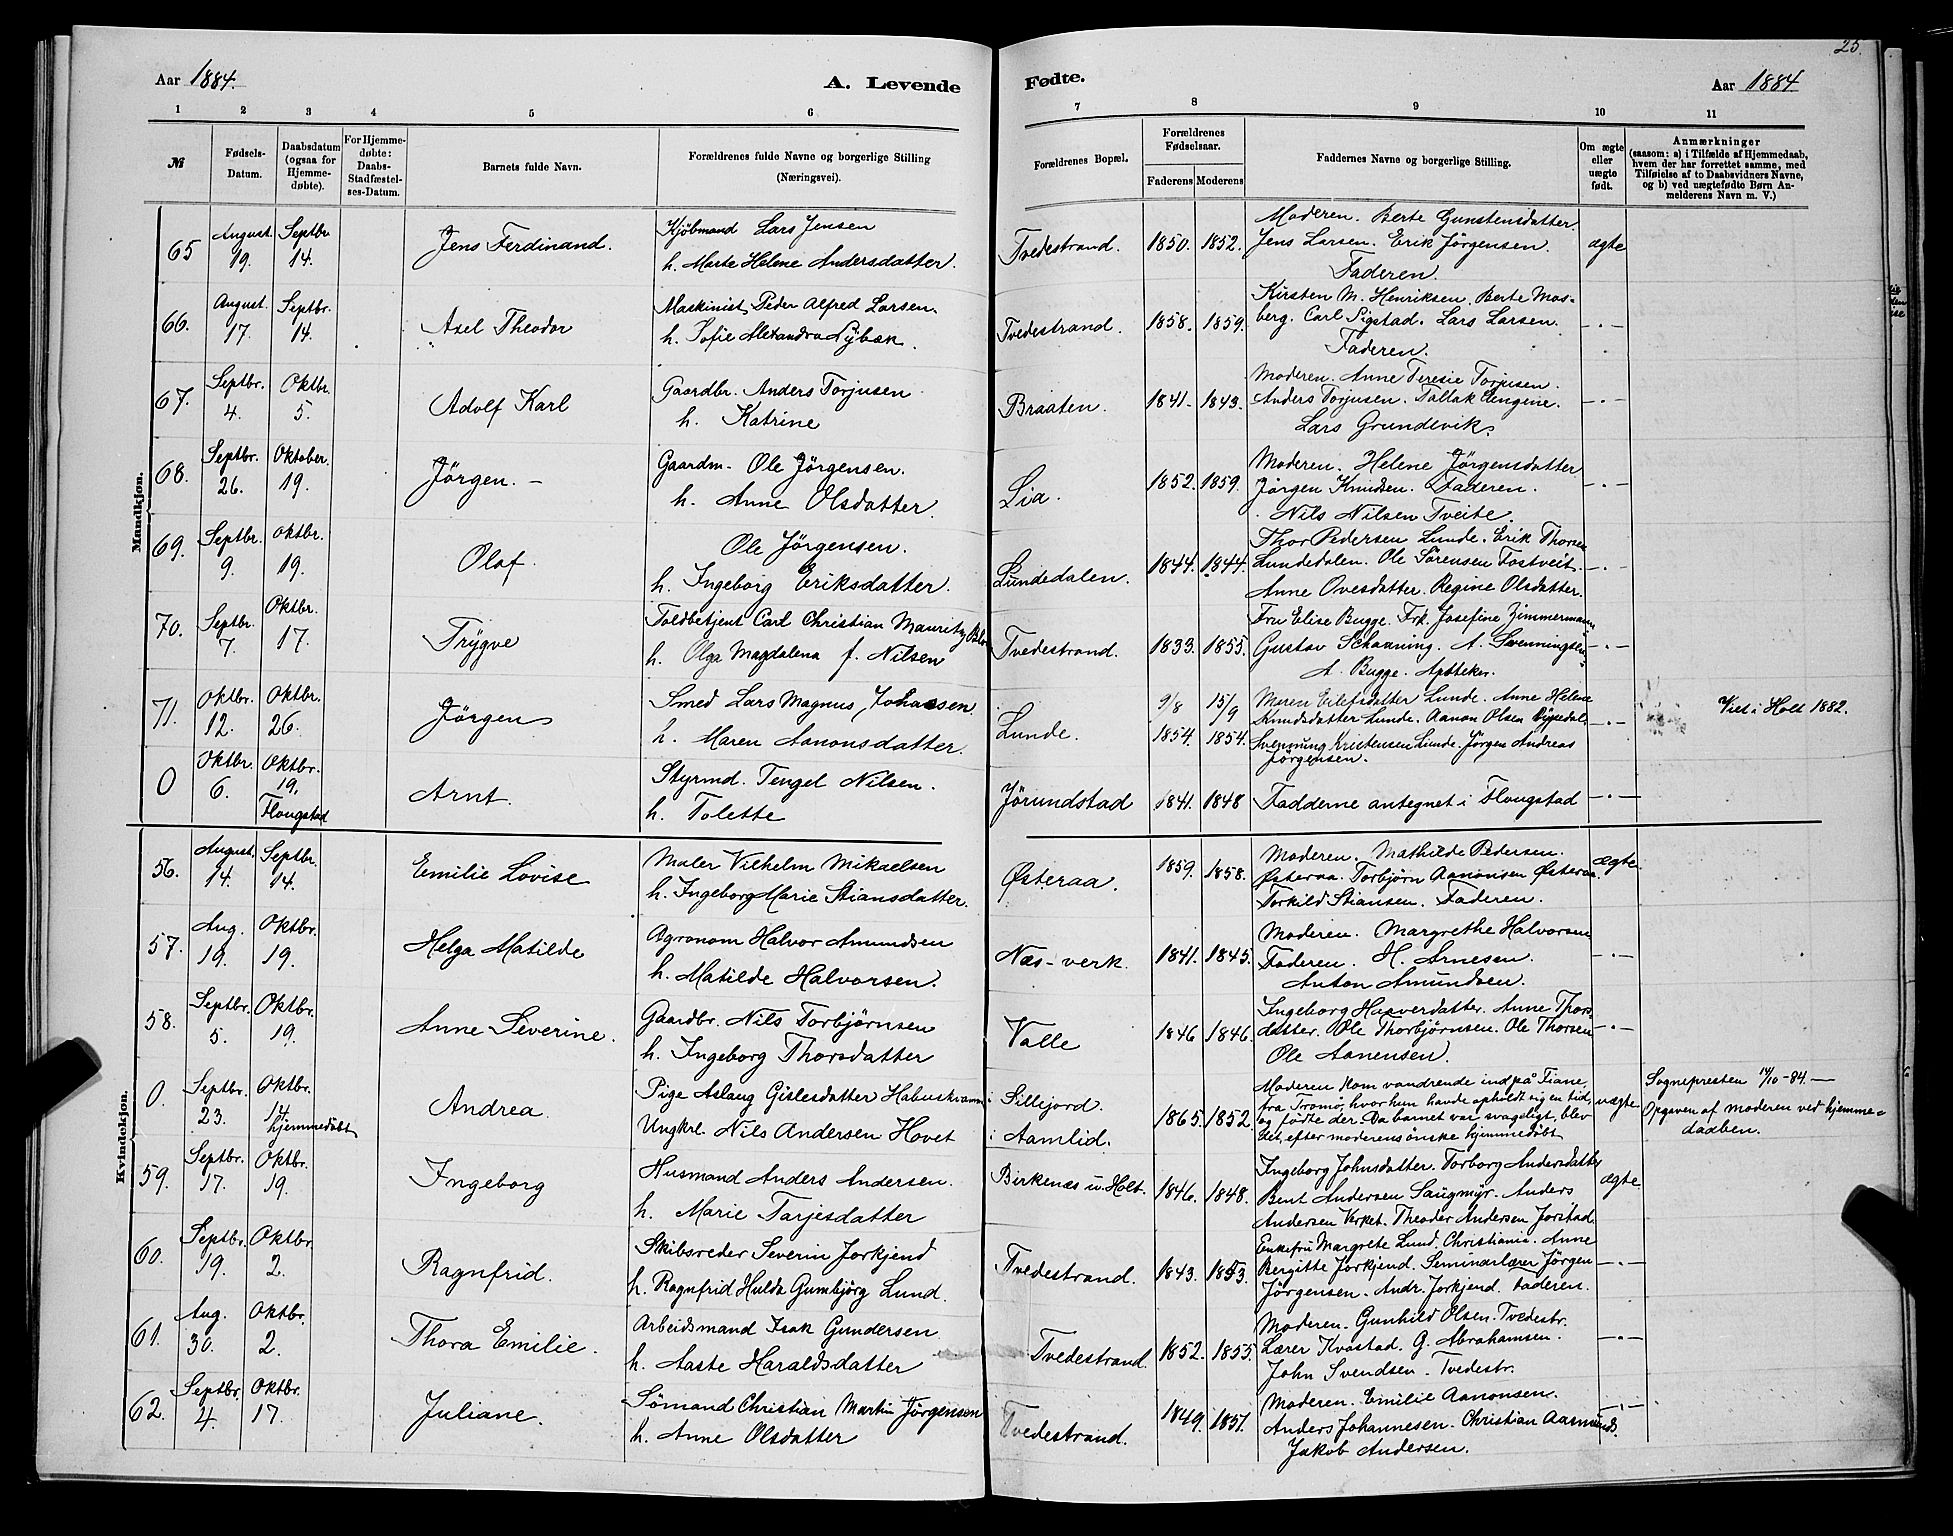 25.
Aar 1884. A. Levende Fødte. Aar 1884
1 2 3 4 5 6 7 8 9 10 11
№
Fødsels-
Datum.
Daabsdatum
(ogsaa for
Hjemme-
døbte).
For Hjemme-
døbte:
Daabs-
Stadfæstel-
ses-Datum.
Barnets fulde Navn.
Forældrenes fulde Navne og borgerlige Stilling
(Næringsvei).
Forældrenes Bopæl.
Forældrenes
Fødselsaar.
Faderens Moderens
Faddernes Navne og borgerlige Stilling.
Om ægte
eller
uægte
født.
Anmærkninger
(saasom: a) i Tilfælde af Hjemmedaab,
hvem der har forrettet samme, med
Tilføielse af to Daabsvidners Navne,
og b) ved uægtefødte Børn An-
melderens Navn m. V.)
Mandkjøn.
65 August. 19. Septbr 14. Jens Ferdinand.
Kjøbmand Lars Jensen
h. Marte Helene Andersdatter.
Tvedestrand. 1850. 1852.
Moderen. Berte Gunstensdatter
Jens Larsen. Erik Jörgensen
Faderen.
ægte
66. August. 17. Septbr. 14. Axel Theodor
Maskinist Peder Alfred Larsen.
h. Sofie Alexandra Nybæk.
Tvedestrand. 1858. 1859.
Kirsten M. Henriksen. Berte Mos-
berg. Carl Sigstad. Lars Larsen.
Faderen.
—·—
67. Septbr. 4. Oktbr. 5. Adolf Karl
Gaardbr. Anders Torjusen
h. Katrine
Braaten. 1841. 1843.
Moderen. Anne Teresie Torjusen.
Anders Torjusen. Tallak Lengene.
Lars Grundevik.
—·—
68. Septbr. 26. Oktober. 19. Jörgen. —
Gaardm. Ole Jörgensen.
h. Anne Olsdatter.
Lia. 1852. 1859.
Moderen. Helene Jörgensdatter
Jörgen Knudsen. Faderen.
Nils Nilsen Tveite.
—·—
69. Septbr. 9. Oktbr. 19. Olaf.
Ole Jörgensen.
h. Ingeborg Eriksdatter.
Lundedalen. 1844. 1844.
Thor Pedersen Lunde. Erik Thorsen
Lundedalen. Ole Sörensen Fostveit.
Anne Ovesdatter. Regine Olsdatter.
—·—
70. Septbr. 7. Oktbr. 17. Trygve
Toldbetjent Carl Christian Mauritz
h. Olga Magdalena f. Nilsen
Tvedestrand. 1833. 1855.
Fru Elise Bugge. Frk. Josefine Zimmermann
Gustav Schanning. A. Svenningsen
A. Bugge. Apotheker.
—·—
71. Oktbr. 12. Oktbr. 26. Jörgen
Smed Lars Magnus Johansen
h. Maren Aanonsdatter.
Lunde. 9/8 1854. 15/9 1854.
Maren Eilefsdatter Lunde. Anne Helene
Knudsdatter Lunde. Aanon Olsen
Svennung Kristensen Lunde. Jörgen Andreas
Jörgensen.
—·— Viet i Holt 1882.
0 Oktbr. 6. Oktbr. 19. Flougstad Arnt.
Styrmd. Tengel Nilsen.
h. Tolette
Jörundstad 1841. 1848
Fadderne antegnet i Flougstad —·—
Kvindekjøn.
56. August. 14. Septbr. 14. Emilie Lovise
Maler Vilhelm Mikaelsen
h. Ingeborg Marie Stiansdatter.
Østeraa. 1859. 1858.
Moderen. Mathilde Pedersen.
Østeraa. Torbjørn Aanonsen Østeraa.
Torkild Stiansen. Faderen.
ægte
57. Aug. 19. Oktbr. 19. Helga Matilde
Agronom Halvor Amundsen
h. Matilde Halvorsen.
Næs-verk. 1841. 1845.
Moderen. Margrethe Halvorsen
Faderen. H. Arnesen.
Anton Amundsen.
—·—
58. Septbr. 5. Oktbr. 19. Anne Severine.
Gaardbr. Nils Torbjörnsen
h. Ingeborg Thorsdatter
Valle 1846 1846.
Ingeborg Haaversdatter. Anne Thors-
datter. Ole Thorbjörnsen. Ole Thorsen
Ole Aanensen.
—·—
0. Septbr. 23. Oktbr. 14. hjemmedöbt Andrea.
Pige Aslaug Gislesdatter
Ungkrl. Nils Andersen Hovet
i Sillejord.
i Aamlid.
1865. 1852.
Moderen kom vandrende ind på Tiane,
fra Tromö, hvor hun havde opholdt sig en tid
og födte der. Da barnet var svageligt, blev
det, efter moderens önske hjemmedöbt.
uægte
Sognepresten 14/10-84.—
Opgaven af moderen ved hjemme-
daaben.
59. Septbr. 17. Oktbr. 19. Ingeborg
Husmand Anders Andersen.
h. Marie Tarjesdatter
Birkenæs u. Holt. 1846. 1848.
Ingeborg Johnsdatter. Torborg Andersdatter
Bent Andersen Saugmyr. Anders
Andersen Verket. Theodor Andersen Jorstad.
ægte
60. Septbr. 19. Oktbr. 2. Ragnfrid.
Skibsreder Severin Jorkjend
h. Ragnfrid Hulda Gumbjörg Lund.
Tvedestrand. 1843. 1853.
Enkefru Margrete Lund. Christiania. Anne
Bergitte Jorkjend. Seminarlærer Jörgen
Jörgensen. Andr. Jorkjend. Faderen.
—·—
61. Aug. 30. Oktbr. 2. Thora Emilie.
Arbeidsmand Isak Gundersen
h. Aaste Haraldsdatter
Tvedestrand. 1852. 1855.
Moderen. Gunhild Olsen. Tvedestr.
Lærer Kvastad. G. Abrahamsen.
John Svendsen. Tvedestr.
—·—
62. Septbr. 4. Oktbr. 17. Juliane.
Sömand Christian Martin Jörgensen
h. Anne Olsdatter
Tvedestrand. 1849. 1851.
Moderen. Emilie Aanonsen.
Anders Johannesen. Christian Aasmunds.
Jakob Andersen.
—·—